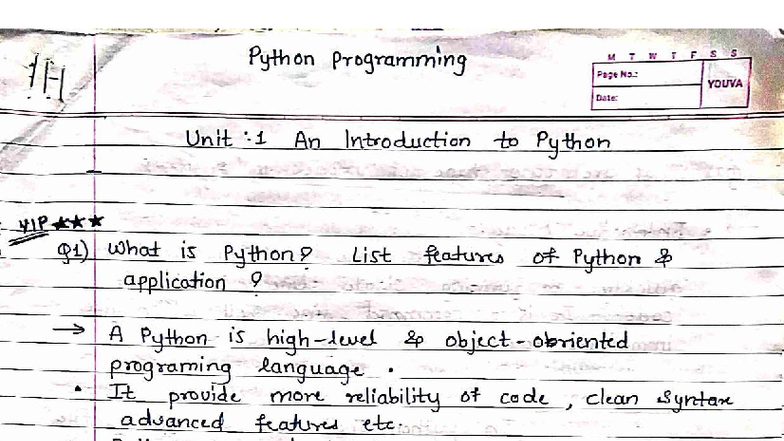 Python Programming
M T W T F S S
Page No.:
YOUVA
Date:
Unit :1 An Introduction to Python
VIP ★★★
Q1) What is Python? List features of Python &
application ?
→ A Python is high-level & object-obriented
programing language .
• It provide more reliability of code, clean Syntax
advanced features etc.